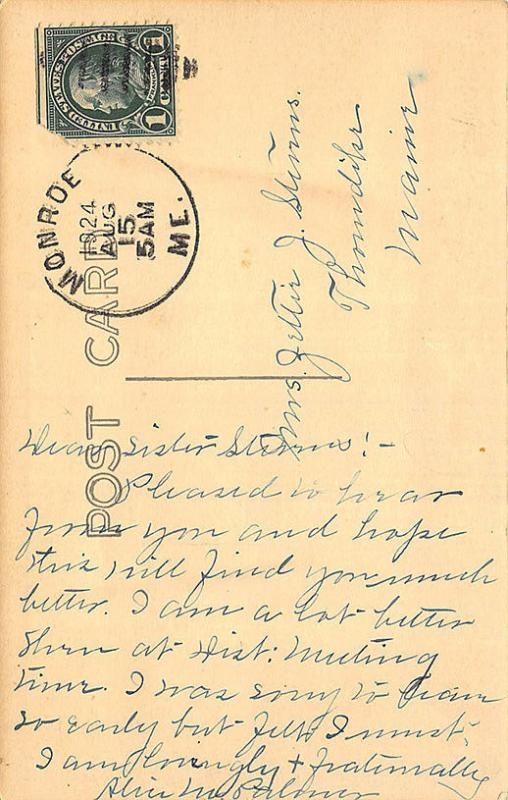 UNITED STATES POSTAGE
FRANKLIN
1 CENT 1
MONROE
ME.
1924
AUG
15
5 AM
POST CARD
Mrs. Nettie J. Stevens.
Thorndike
Maine
Dear Sister Stevens! -
Pleased to hear
from you and hope
this will find you much
better. I am a lot better
than at Dist: Meeting
time. I was sorry to leave
so early but felt I must.
I am lovingly + fraternally
Alice M. Palmer